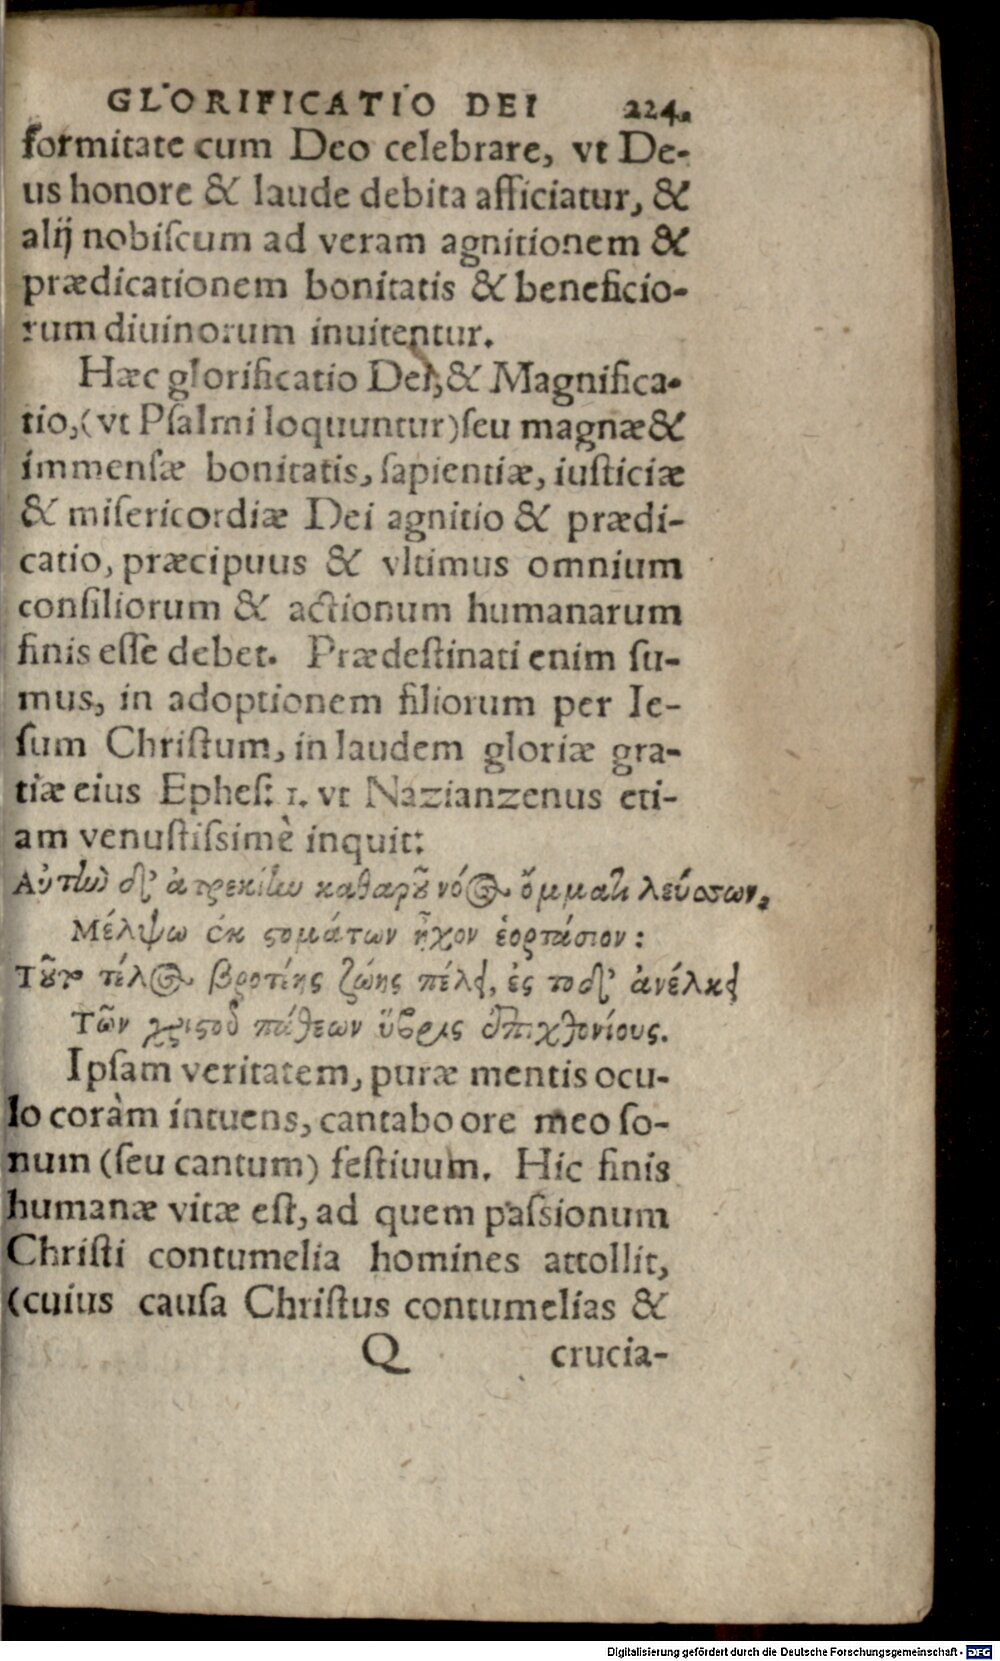 GLORIFICATIO DEI 224.
formitate cum Deo celebrare, vt De-
us honore & laude debita afficiatur, &
alij nobiſcum ad veram agnitionem &
prædicationem bonitatis & beneficio-
rum diuinorum inuitentur.
Hæc glorificatio Dei, & Magnifica-
tio, (vt Pſalmi loquuntur) ſeu magnæ &
immenſæ bonitatis, ſapientiæ, iuſticiæ
& miſericordiæ Dei agnitio & prædi-
catio, præcipuus & vltimus omnium
conſiliorum & actionum humanarum
finis eſſe debet. Prædeſtinati enim ſu-
mus, in adoptionem filiorum per Ie-
ſum Chriſtum, in laudem gloriæ gra-
tiæ eius Epheſ: 1. vt Nazianzenus eti-
am venuſtiſsimè inquit:
Αὐτὴν δ' ἀτρεκίην καθαροῦ νόος ὄμματι λεύσσων,
Μέλψω ἐκ στομάτων ἦχον ἑορτάσιον:
Τοῦτο τέλος βροτέης ζώης πέλει, ἐς τόδ' ἀνέλκει
Τῶν χριστοῦ πάθεων ὕβρις ἐπιχθονίους.
Ipſam veritatem, puræ mentis ocu-
lo coràm intuens, cantabo ore meo ſo-
num (ſeu cantum) feſtiuum. Hic finis
humanæ vitæ eſt, ad quem paſsionum
Chriſti contumelia homines attollit,
(cuius cauſa Chriſtus contumelias &
Q crucia-
Digitalisierung gefördert durch die Deutsche Forschungsgemeinschaft - DFG